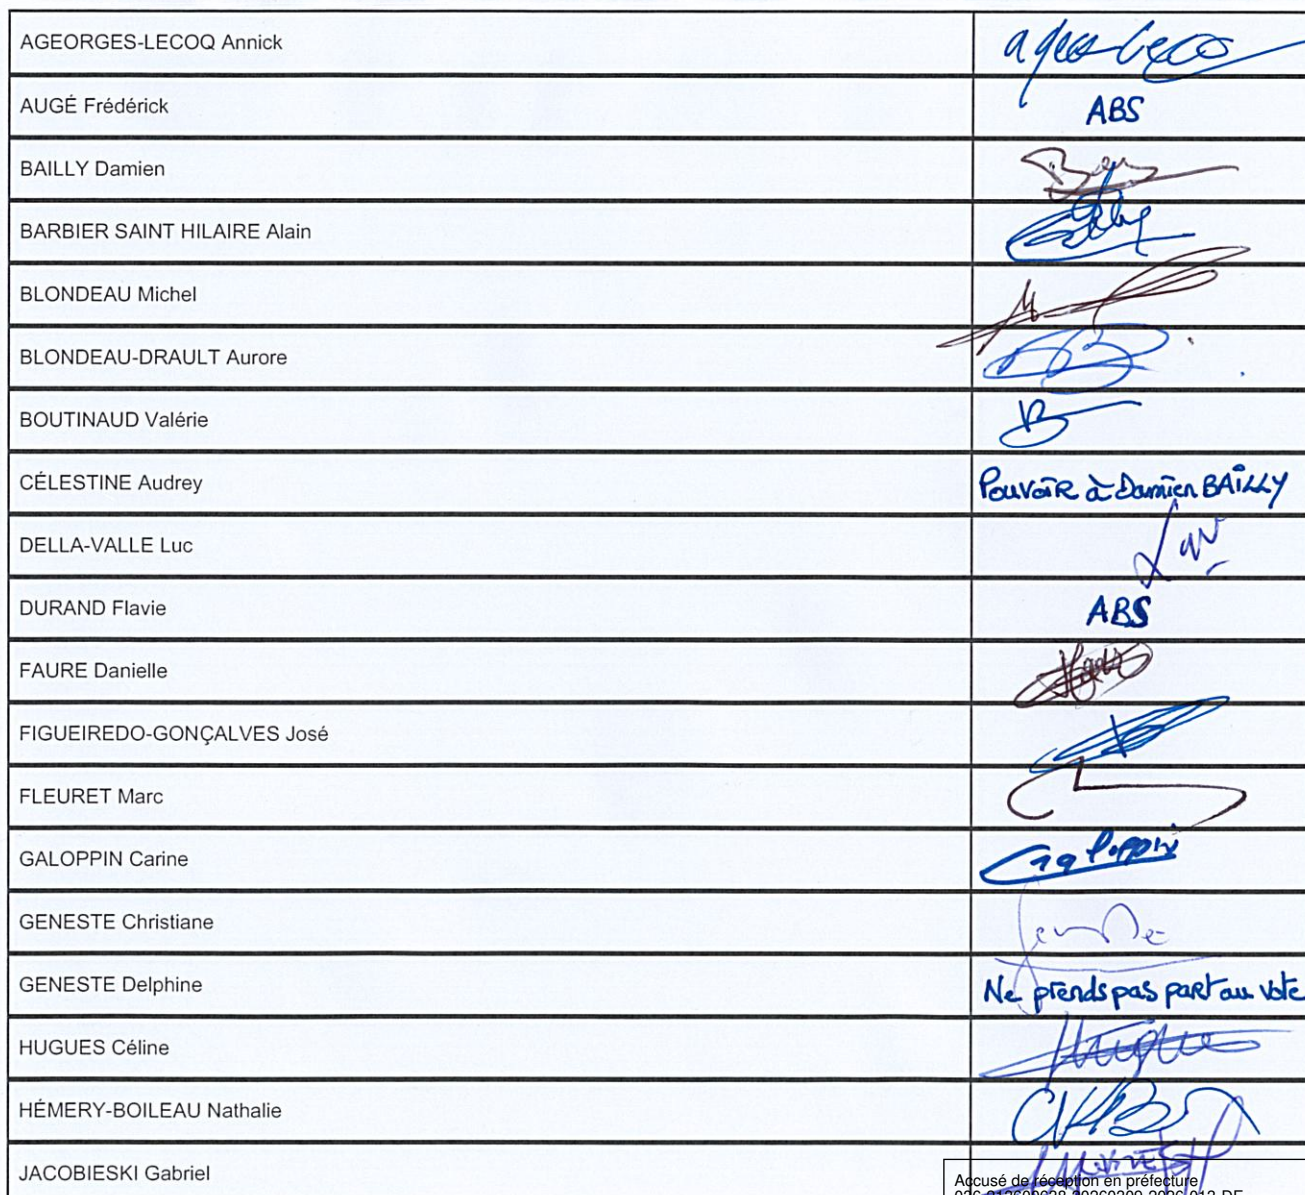 AGEORGES-LECOQ Annick
AUGÉ Frédérick ABS
BAILLY Damien
BARBIER SAINT HILAIRE Alain
BLONDEAU Michel
BLONDEAU-DRAULT Aurore
BOUTINAUD Valérie
CÉLESTINE Audrey Pouvoir à Damien BAILLY
DELLA-VALLE Luc
DURAND Flavie ABS
FAURE Danielle
FIGUEIREDO-GONÇALVES José
FLEURET Marc
GALOPPIN Carine
GENESTE Christiane
GENESTE Delphine Ne prends pas part au vote
HUGUES Céline
HÉMERY-BOILEAU Nathalie
JACOBIESKI Gabriel
Accusé de réception en préfecture